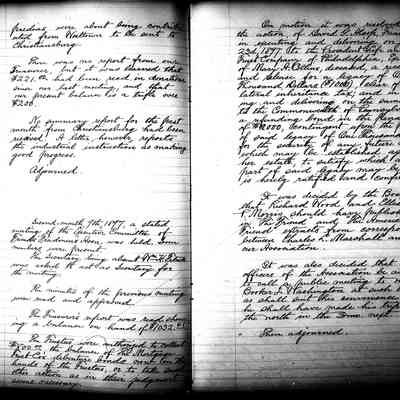 freedmen were about being contributed
ated from Uptown to be sent to
Christiansburg.
There was no report from our
Treasurer, but it is understood that
$221.00 had been recd in donations
since our last meeting, and that
our present balance is a trifle over
$200.
No summary report for the past
month from Christiansburg had been
received. A letter, however, reports
the industrial instruction as making
good progress.
Adjourned.
Second month 9th 1897, a stated
meeting of the Executive Committee of
Friends Freedmen's Assn, was held. Some
members were present.
The Secretary being absent Wm H.
was asked to act as Secretary for
the meeting.
The minutes of the previous meeting
were read and approved.
The Treasurer's report was read show-
ing a balance on hand of $1032.
The Trustees were authorized to collect
$500.00 the balance of the Mortgage
Trust Co's debenture bonds now in the
hands of the Trustees, or to take such
other action as in their judgment
seems necessary.
On motion it was resolved
the action of David G. Alsop
in executing and delivering on
23d, 1897, to the Provident Life and
Trust Company of Philadelphia,
of Mary H. Collins, deceased, a
and release for a legacy of
Thousand Dollars ($1000)
lateral inheritance tax, and
ing and delivering on the same
to the Commonwealth of
a refunding bond in the
of $2000, contingent upon the
of said legacy of One Thousand
for the security of any future
which may be established
her estate, to satisfy which a
part of said legacy may be
is hereby ratified and confirmed
It was decided by the Board
that Richard Wood, and Elliston
P. Morris should have published
in The Friend and The American
Friend extracts from correspondence
between Charles L. Marshall and
our Association.
It was also decided that
officers of the Association be
to call a public meeting to
Booker T. Washington at such
as shall suit his convenience
he shall have made his trip
the north in the
Then adjourned.